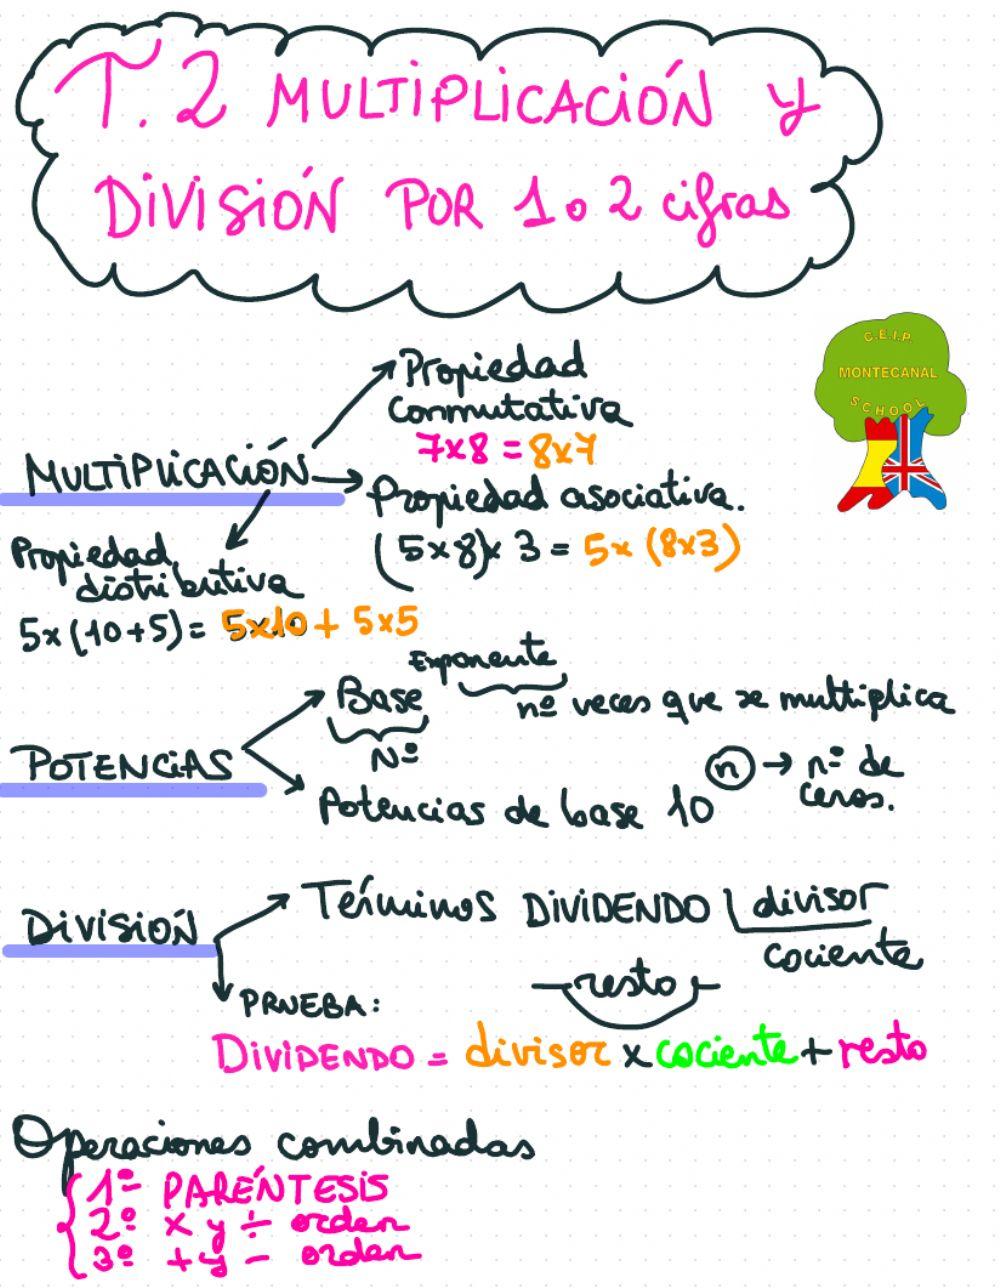 T.2 MULTIPLICACIÓN y
DIVISIÓN POR 1 o 2 cifras
C.E.I.P.
MONTECANAL
SCHOOL
MULTIPLICACIÓN
Propiedad
conmutativa
7x8 = 8x7
Propiedad asociativa.
(5x8)x 3 = 5x (8x3)
Propiedad
distributiva
5x(10+5)= 5x10 + 5x5
POTENCIAS
Base
Nº
Exponente
nº veces que se multiplica
Potencias de base 10
n → nº de
ceros.
DIVISIÓN
Términos DIVIDENDO divisor
cociente
resto
PRUEBA:
DIVIDENDO = divisor x cociente + resto
Operaciones combinadas
1º PARÉNTESIS
2º x y ÷ orden
3º + y - orden